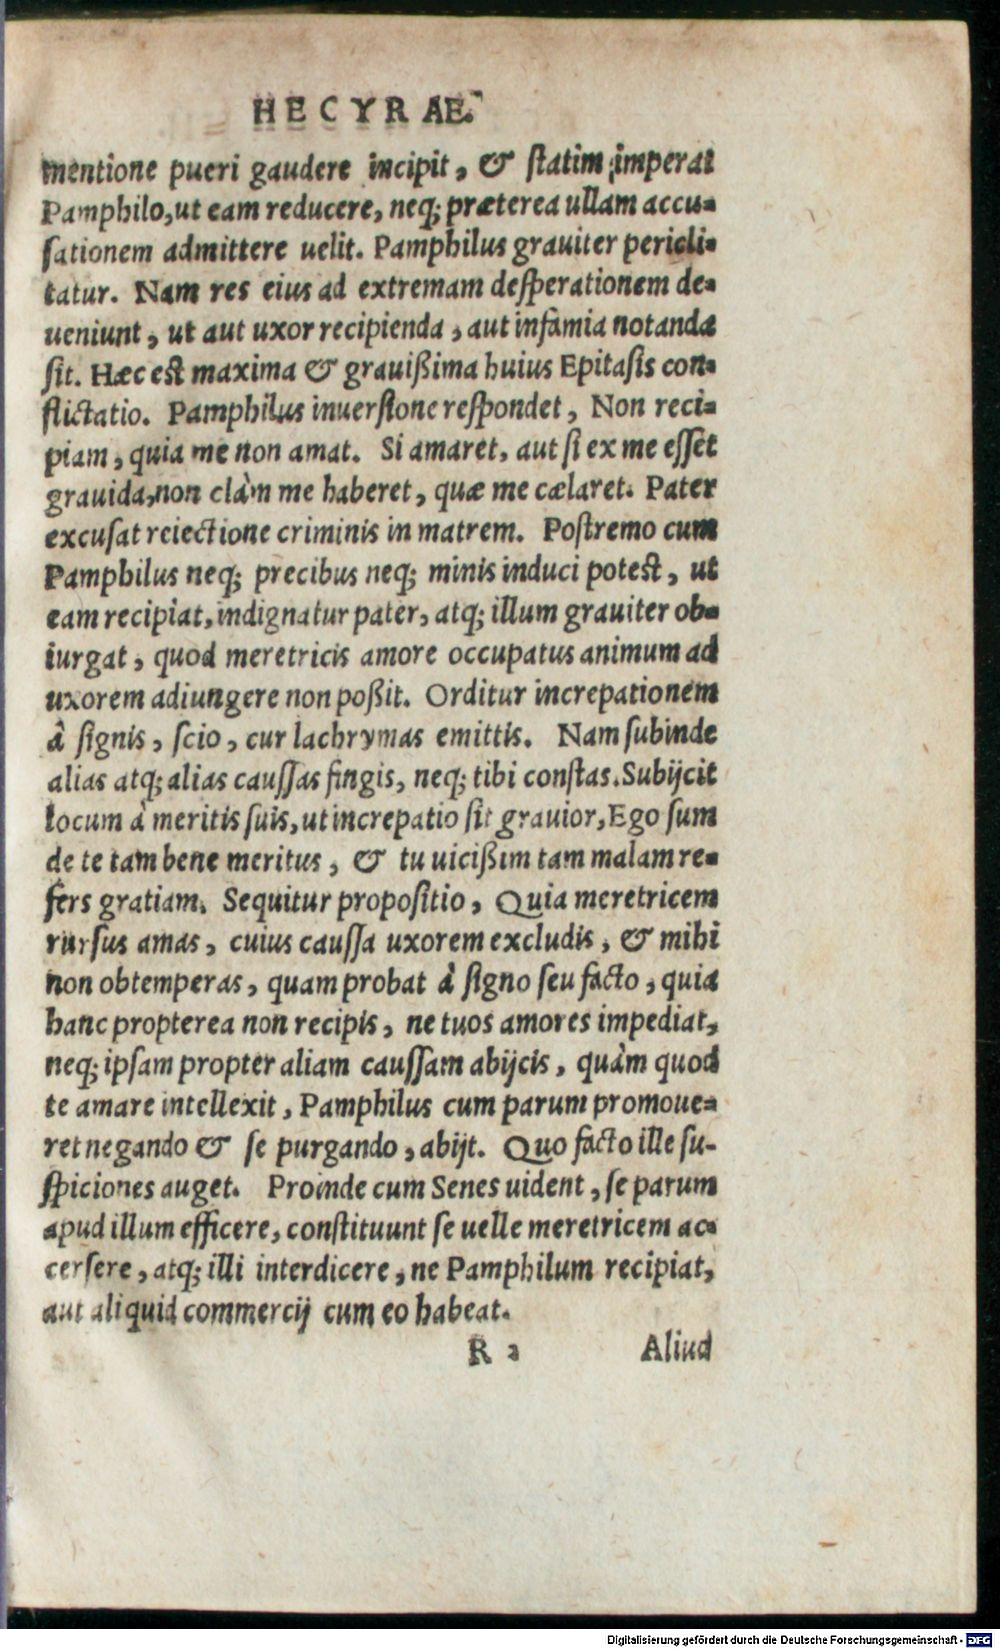 HECYRAE.
mentione pueri gaudere incipit, & ſtatim imperat
Pamphilo, ut eam reducere, neq; præterea ullam accu-
ſationem admittere uelit. Pamphilus grauiter pericli-
tatur. Nam res eius ad extremam deſperationem de-
ueniunt, ut aut uxor recipienda, aut infamia notanda
ſit. Hæc eſt maxima & grauißima huius Epitaſis con-
flictatio. Pamphilus inuerſione reſpondet, Non reci-
piam, quia me non amat. Si amaret, aut ſi ex me eſſet
grauida, non clàm me haberet, quæ me cælaret. Pater
excuſat reiectione criminis in matrem. Poſtremo cum
Pamphilus neq; precibus neq; minis induci poteſt, ut
eam recipiat, indignatur pater, atq; illum grauiter ob-
iurgat, quod meretricis amore occupatus animum ad
uxorem adiungere non poßit. Orditur increpationem
à ſignis, ſcio, cur lachrymas emittis. Nam ſubinde
alias atq; alias cauſſas fingis, neq; tibi conſtas. Subijcit
locum à meritis ſuis, ut increpatio ſit grauior, Ego ſum
de te tam bene meritus, & tu uicißim tam malam re-
fers gratiam. Sequitur propoſitio, Quia meretricem
rurſus amas, cuius cauſſa uxorem excludis, & mihi
non obtemperas, quam probat à ſigno ſeu facto, quia
hanc propterea non recipis, ne tuos amores impediat,
neq; ipſam propter aliam cauſſam abijcis, quàm quod
te amare intellexit, Pamphilus cum parum promoue-
ret negando & ſe purgando, abijt. Quo facto ille ſu-
ſpiciones auget. Proinde cum Senes uident, ſe parum
apud illum efficere, conſtituunt ſe uelle meretricem ac-
cerſere, atq; illi interdicere, ne Pamphilum recipiat,
aut aliquid commercij cum eo habeat.
R 2 Aliud
Digitalisierung gefördert durch die Deutsche Forschungsgemeinschaft - DFG